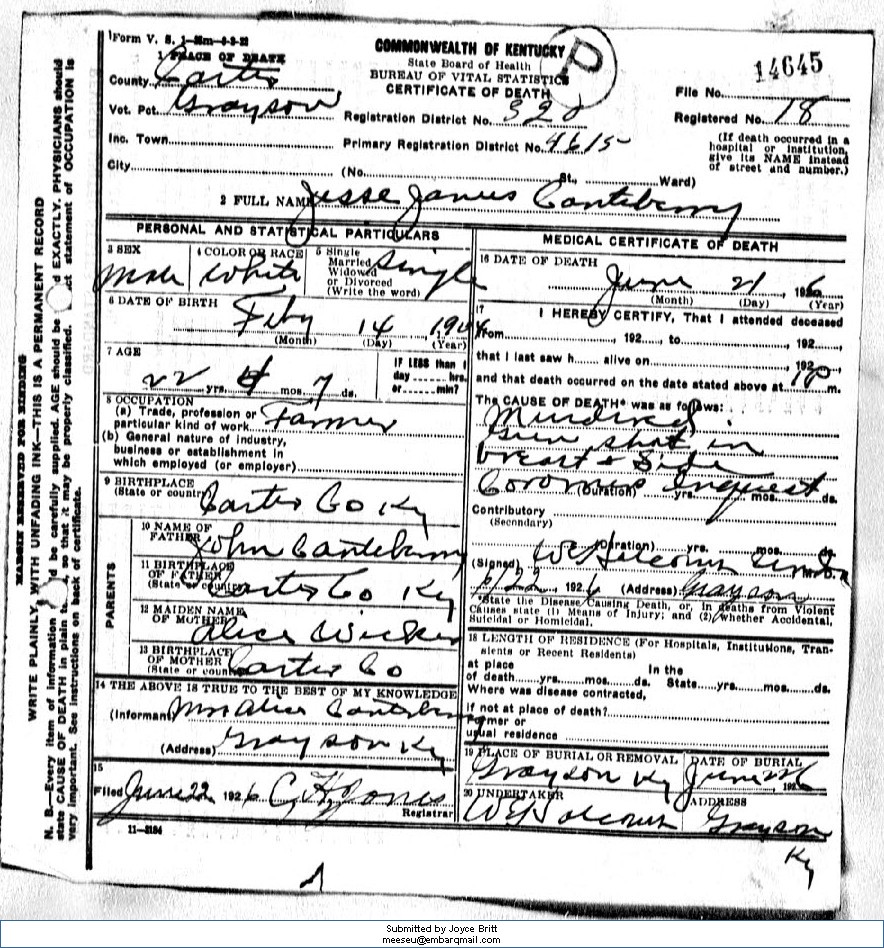 Form V. S. 1-
COMMONWEALTH OF KENTUCKY
State Board of Health
BUREAU OF VITAL STATISTICS
CERTIFICATE OF DEATH
P
14645
File No.
Registered No. 18
(If death occurred in a
hospital or institution,
give its NAME instead
of street and number.)
1 PLACE OF DEATH
County Carter
Vot. Pct. Grayson
Registration District No. 320
Inc. Town
Primary Registration District No. 4615
City
(No. St., Ward)
2 FULL NAME Jesse James Canteberry
PERSONAL AND STATISTICAL PARTICULARS
3 SEX
Male
4 COLOR OR RACE
White
5 Single
Married
Widowed
or Divorced
(Write the word)
Single
6 DATE OF BIRTH
Feby 14 1904
(Month) (Day) (Year)
7 AGE
22 yrs. 4 mos. 7 ds.
IF LESS than 1
day hrs.
or min?
8 OCCUPATION
(a) Trade, profession or
particular kind of work Farmer
(b) General nature of industry,
business or establishment in
which employed (or employer)
9 BIRTHPLACE
(State or country) Carter Co Ky
PARENTS
10 NAME OF
FATHER John Canteberry
11 BIRTHPLACE
OF FATHER
(State or country) Carter Co Ky
12 MAIDEN NAME
OF MOTHER Alice
13 BIRTHPLACE
OF MOTHER
(State or country) Carter Co
14 THE ABOVE IS TRUE TO THE BEST OF MY KNOWLEDGE
(Informant) Mrs Alice Canteberry
(Address) Grayson Ky
15
Filed June 22 1926 C. H. Jones
Registrar
11-3184
MEDICAL CERTIFICATE OF DEATH
16 DATE OF DEATH
June 21 1926
(Month) (Day) (Year)
17
I HEREBY CERTIFY, That I attended deceased
from , 192 , to , 192 ,
that I last saw h alive on , 192
and that death occurred on the date stated above at m.
The CAUSE OF DEATH* was as follows:
Murdered.
Gun shot in
breast & Side
Coroners Inquest
(Duration) yrs. mos. ds.
Contributory
(Secondary)
(Duration) yrs. mos. ds.
(Signed)
M. D.
6/22, 1926 (Address) Grayson
*State the Disease Causing Death, or, in deaths from Violent
Causes state (1) Means of Injury; and (2) whether Accidental,
Suicidal or Homicidal.
18 LENGTH OF RESIDENCE (For Hospitals, Institutions, Tran-
sients or Recent Residents)
at place In the
of death yrs. mos. ds. State yrs. mos. ds.
Where was disease contracted,
if not at place of death?
Former or
usual residence
19 PLACE OF BURIAL OR REMOVAL
Grayson Ky
DATE OF BURIAL
June 1926
20 UNDERTAKER
ADDRESS
Grayson
Ky
MARGIN RESERVED FOR BINDING
WRITE PLAINLY, WITH UNFADING INK—THIS IS A PERMANENT RECORD
N. B.—Every item of information be carefully supplied. AGE should be EXACTLY. PHYSICIANS should
state CAUSE OF DEATH in plain so that it may be properly classified. statement of OCCUPATION is
very important. See instructions on back of certificate.
Submitted by Joyce Britt
meeseu@embarqmail.com